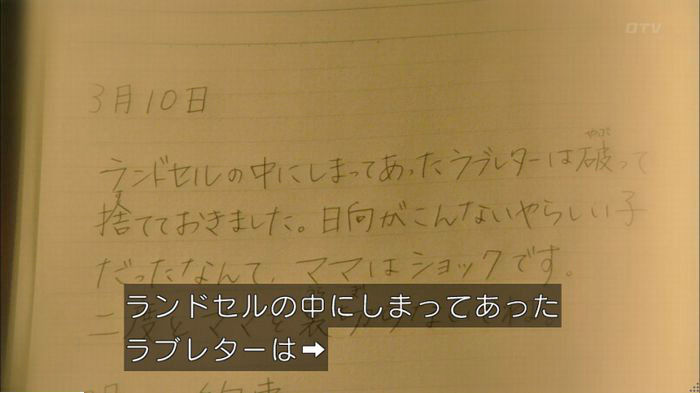 DTV
3月10日
ランドセルの中にしまってあったラブレターは破って
捨てておきました。日向がこんないやらしい子
だったなんて、ママはショックです。
二度とママを裏
ランドセルの中にしまってあった
ラブレターは➡